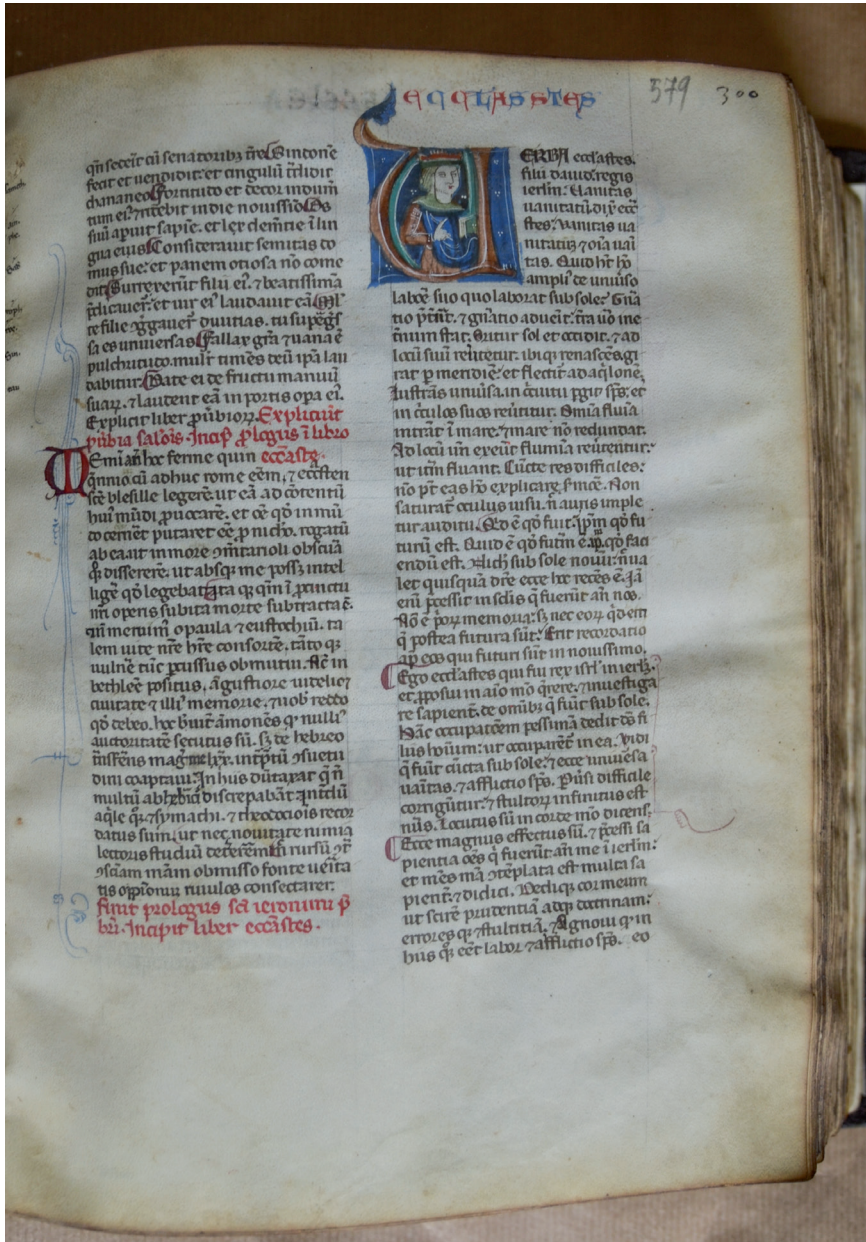 ECCLASSTES
579 300
qñ seceir̄ cū senatoribꝫ tr̄e Sindone
fecit et uendidit et cingulū tͣdidit
chananeo Fortitudo et decor indum̄
tum ei⁹ ⁊ ridebit in die nouissīo Os
suū apuit sapīe. et lex clem̄tie ī lin
gua eius Considerauit semitas do
mus sue. et panem otiosa nō come
dit Surrexerūt filii ei⁹. ⁊ beatissimā
p̄dicauer̄t. et uir ei⁹ laudauit eā Ml̓
te filie ꝯgͣgauer̄t diuitias. tu suꝑgͣs
sa es uniuersas Fallax gr̄a ⁊ uana ē
pulchritudo. mulr̄ timēs deū ip̄a lau
dabitur Date ei de fructu manuū
suaꝝ. ⁊ laudent eā in portis oꝑa ei⁹.
Explicit liber ꝓūbioꝝ. Expliciūt
ꝓūbia salōis. Incip̄ ꝓlogus ī libro
Memiāi hoc ferme quin eccasste.
qūnnio cū adhuc rome eēm. ⁊ eccɫesten
scē blesille legerē. ut eā ad ꝯtentū
hui⁹ mūdi ꝓuocarē. et oē qd̓ in mū
do cerneret putaret eē ꝓ nichͦo. rogatū
ab ea ut in more ꝯm̄tarioli obscura
qͣꝫ dissererē. ut absqꝫ me possꝫ intel
ligē qd̓ legebat Itaqꝫ qm̄ ī ꝓcinctu
nr̄i operis subita morte subtracta ē.
⁊ nō meruim⁹ o paula ⁊ eustochiū. ta
lem uite nr̄e hr̄e consortē. tāto qꝫ
uulnē tūc ꝑcussus obmutui. Nc̄ in
bethleē positus. augustiore uidelicꝫ
ciuitate ⁊ illi⁹ memorie. ⁊ uob̓ reddo
qd̓ debeo. hoc breuit̓ āmonēs qꝫ nulli⁹
auctoritatē secutus sū. sꝫ de hebreo
tͣnsferēs magis me lxx. int̓ptū ꝯsuetu
dini coaptaui. In hiis dūtaxat q̄ n̄
multū ab hebͣicꝭ discrepabāt. Int̓dū
aqͥle qͦꝫ ⁊ symachi. ⁊ theodociōis recor
datus sum. ut nec nouitate nimia
lectoris studiū det̓rerem n̄ rursū ꝯtͣ
ꝯsciam mām obmisso fonte ueita
tis opp̄ionū riuulos consectarer.
finit prologus scī ieronimi p̄
bri. Incipit liber eccasstes.
VERBA ecclastes.
filii dauid. regis
ierl̄m. Vanitas
uanitatū dix̄ eccɫ
stes. uanitas ua
nitatū ⁊ oīa uai
tas. Quid hꝫ hō
ampli⁹ de uniūso
laboē suo quo laborat sub sole? Gn̄a
tio p̄terit. ⁊ gn̄atio aduēit. tr̄a uō in e
t̓num stat. Oritur sol et occidit. ⁊ ad
locū suū reūtetur. ibiqꝫ renascēs. gi
rat ꝑ meridiē. et flectit ad aqͥlonē.
lustrās uniūsa. in cͥcuitu ꝑgit sp̄s. et
in cͥculos suos reūtitur. Omīa flūia
intrāt ī mare. ⁊ mare nō redundat.
Ad locū un̄ exeūt flumīa reūtentur.
ut it̓m fluant. Cūcte res difficiles.
nō pōt eas hō explicare sermone. Non
saturat̓ oculus uisu. n̄ auris imple
tur auditu. Qͥd ē qd̓ fuit. ip̄m qd̓ fu
turū est. Quid ē qd̓ factm̄ ē. ip̄m qd̓ faci
endū est. Nichil sub sole nouū. n̄ ua
let quisquā dic̄e ecce hoc recēs ē. Iā
enī p̄cessit in sclīs q̄ fuerūt an̄ nos.
Nō ē pͥoꝝ memoria. sꝫ nec eoꝝ qͥdem
q̄ postea futura sūt. Erit recordatio
apᷣ eos qui futuri sūt in nouissimo.
Ego ecclastes qui fui rex isrl̄ in ierl̄m.
et ꝓposui in aīo mō qͣrere. ⁊ inuestiga
re sapient̓. de omībꝫ q̄ fiūt sub sole.
Hāc occupatōem pessimā dedit dͤs fi
liis hōium. ut occuparēt in ea. Vidi
q̄ fiūt cūcta sub sole. ⁊ ecce uniuēsa
uāitas. ⁊ afflictio sp̄s. Pūsi difficile
corrigūtur. ⁊ stultoꝝ infinitus est
nūs. Locutus sū in corde mō dicens.
Ecce magnus effectus sū. ⁊ p̄cessi sa
pientia oēs q̄ fuerūt an̄ me ī ierl̄m.
et mēs mā ꝯtēplata est multa sa
pient̓. ⁊ didici. Dediqꝫ cor meum
ut scirē prudentiā atqꝫ doctrinam.
errores qꝫ ⁊ stultitiā. ⁊ Agnoui qꝫ in
hiis qͦꝫ eēt labor ⁊ afflictio sp̄s. eo